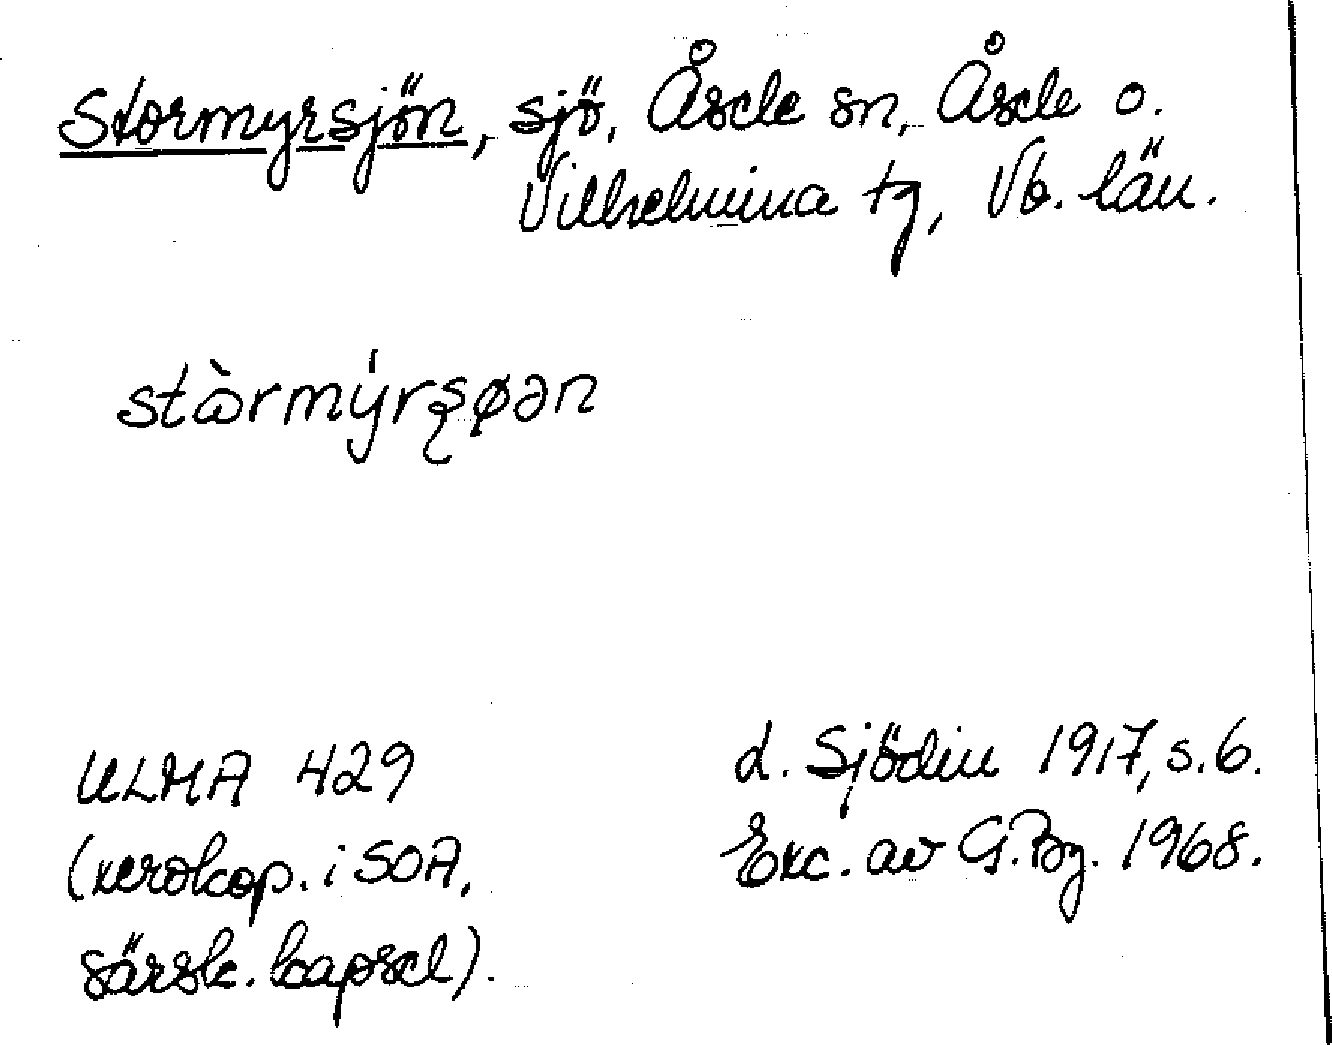 Stormyrsjön, sjö, Åsele sn, Åsele o.
Vilhelmina tg, Vb. län.
stɷ̀rmýrʂøən
ULMA 429
(xerokop. i SOA,
särsk. kapsel).
L. Sjödin 1917, s. 6.
Exc. av G. Bg. 1968.